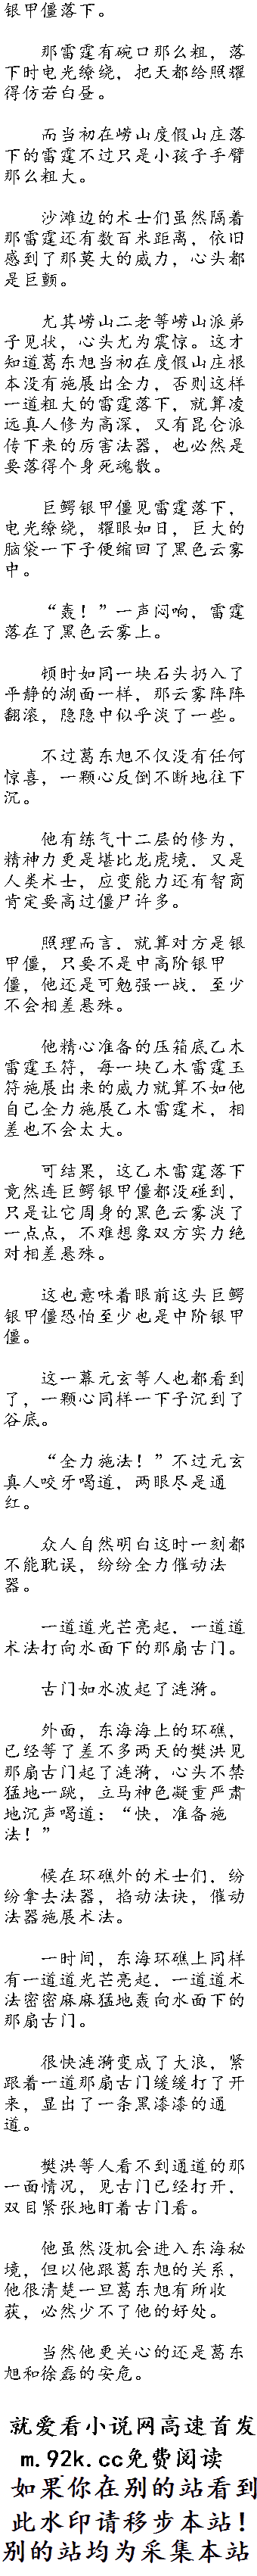 银甲僵落下。
那雷霆有碗口那么粗，落
下时电光缭绕，把天都给照耀
得仿若白昼。
而当初在崂山度假山庄落
下的雷霆不过只是小孩子手臂
那么粗大。
沙滩边的术士们虽然隔着
那雷霆还有数百米距离，依旧
感到了那莫大的威力，心头都
是巨颤。
尤其崂山二老等崂山派弟
子见状，心头尤为震惊。这才
知道葛东旭当初在度假山庄根
本没有施展出全力，否则这样
一道粗大的雷霆落下，就算凌
远真人修为高深，又有昆仑派
传下来的厉害法器，也必然是
要落得个身死魂散。
巨鳄银甲僵见雷霆落下，
电光缭绕，耀眼如日，巨大的
脑袋一下子便缩回了黑色云雾
中。
“轰！”一声闷响，雷霆
落在了黑色云雾上。
顿时如同一块石头扔入了
平静的湖面一样，那云雾阵阵
翻滚，隐隐中似乎淡了一些。
不过葛东旭不仅没有任何
惊喜，一颗心反倒不断地往下
沉。
他有练气十二层的修为，
精神力更是堪比龙虎境，又是
人类术士，应变能力还有智商
肯定要高过僵尸许多。
照理而言，就算对方是银
甲僵，只要不是中高阶银甲
僵，他还是可勉强一战，至少
不会相差悬殊。
他精心准备的压箱底乙木
雷霆玉符，每一块乙木雷霆玉
符施展出来的威力就算不如他
自己全力施展乙木雷霆术，相
差也不会太大。
可结果，这乙木雷霆落下
竟然连巨鳄银甲僵都没碰到，
只是让它周身的黑色云雾淡了
一点点，不难想象双方实力绝
对相差悬殊。
这也意味着眼前这头巨鳄
银甲僵恐怕至少也是中阶银甲
僵。
这一幕元玄等人也都看到
了，一颗心同样一下子沉到了
谷底。
“全力施法！”不过元玄
真人咬牙喝道，两眼尽是通
红。
众人自然明白这时一刻都
不能耽误，纷纷全力催动法
器。
一道道光芒亮起，一道道
术法打向水面下的那扇古门。
古门如水波起了涟漪。
外面，东海海上的环礁，
已经等了差不多两天的樊洪见
那扇古门起了涟漪，心头不禁
猛地一跳，立马神色凝重严肃
地沉声喝道：“快，准备施
法！”
候在环礁外的术士们，纷
纷拿去法器，掐动法诀，催动
法器施展术法。
一时间，东海环礁上同样
有一道道光芒亮起，一道道术
法密密麻麻猛地轰向水面下的
那扇古门。
很快涟漪变成了大浪，紧
跟着一道那扇古门缓缓打了开
来，显出了一条黑漆漆的通
道。
樊洪等人看不到通道的那
一面情况，见古门已经打开，
双目紧张地盯着古门看。
他虽然没机会进入东海秘
境，但以他跟葛东旭的关系，
他很清楚一旦葛东旭有所收
获，必然少不了他的好处。
当然他更关心的还是葛东
旭和徐磊的安危。
就爱看小说网高速首发
m.92k.cc免费阅读
如果你在别的站看到
此水印请移步本站！
别的站均为采集本站